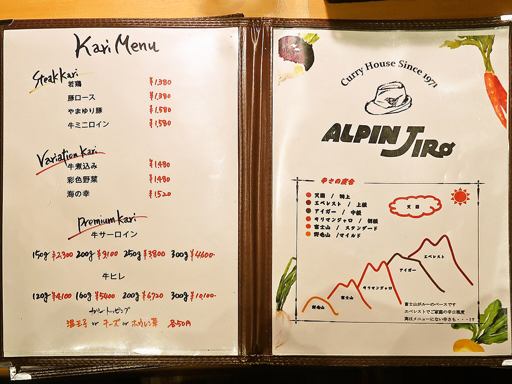 Kari Menu
Steak Kari
若鶏 ¥1,380
豚ロース ¥1,380
やまゆり豚 ¥1,580
牛ミニロイン ¥1,580
Variation Kari
牛煮込み ¥1,480
彩色野菜 ¥1,480
海の幸 ¥1,520
Premium Kari
牛サーロイン
150g ¥2300 200g ¥3100 250g ¥3800 300g ¥4600-
牛ヒレ
120g ¥4100 160g ¥5400 200g ¥6720 300g ¥10,100-
トッピング
温玉子 or チーズ or ホウレン草 各50円
Curry House Since 1971
ALPIN JIRO
辛さの度合
天国 / 特上
エベレスト / 上級
アイガー / 中級
キリマンジャロ / 初級
富士山 / スタンダード
野毛山 / マイルド
天国
エベレスト
アイガー
キリマンジャロ
富士山
野毛山
富士山がルーのベースです
エベレストでご家庭の辛口程度
実はメニューにない辛さも・・・!?